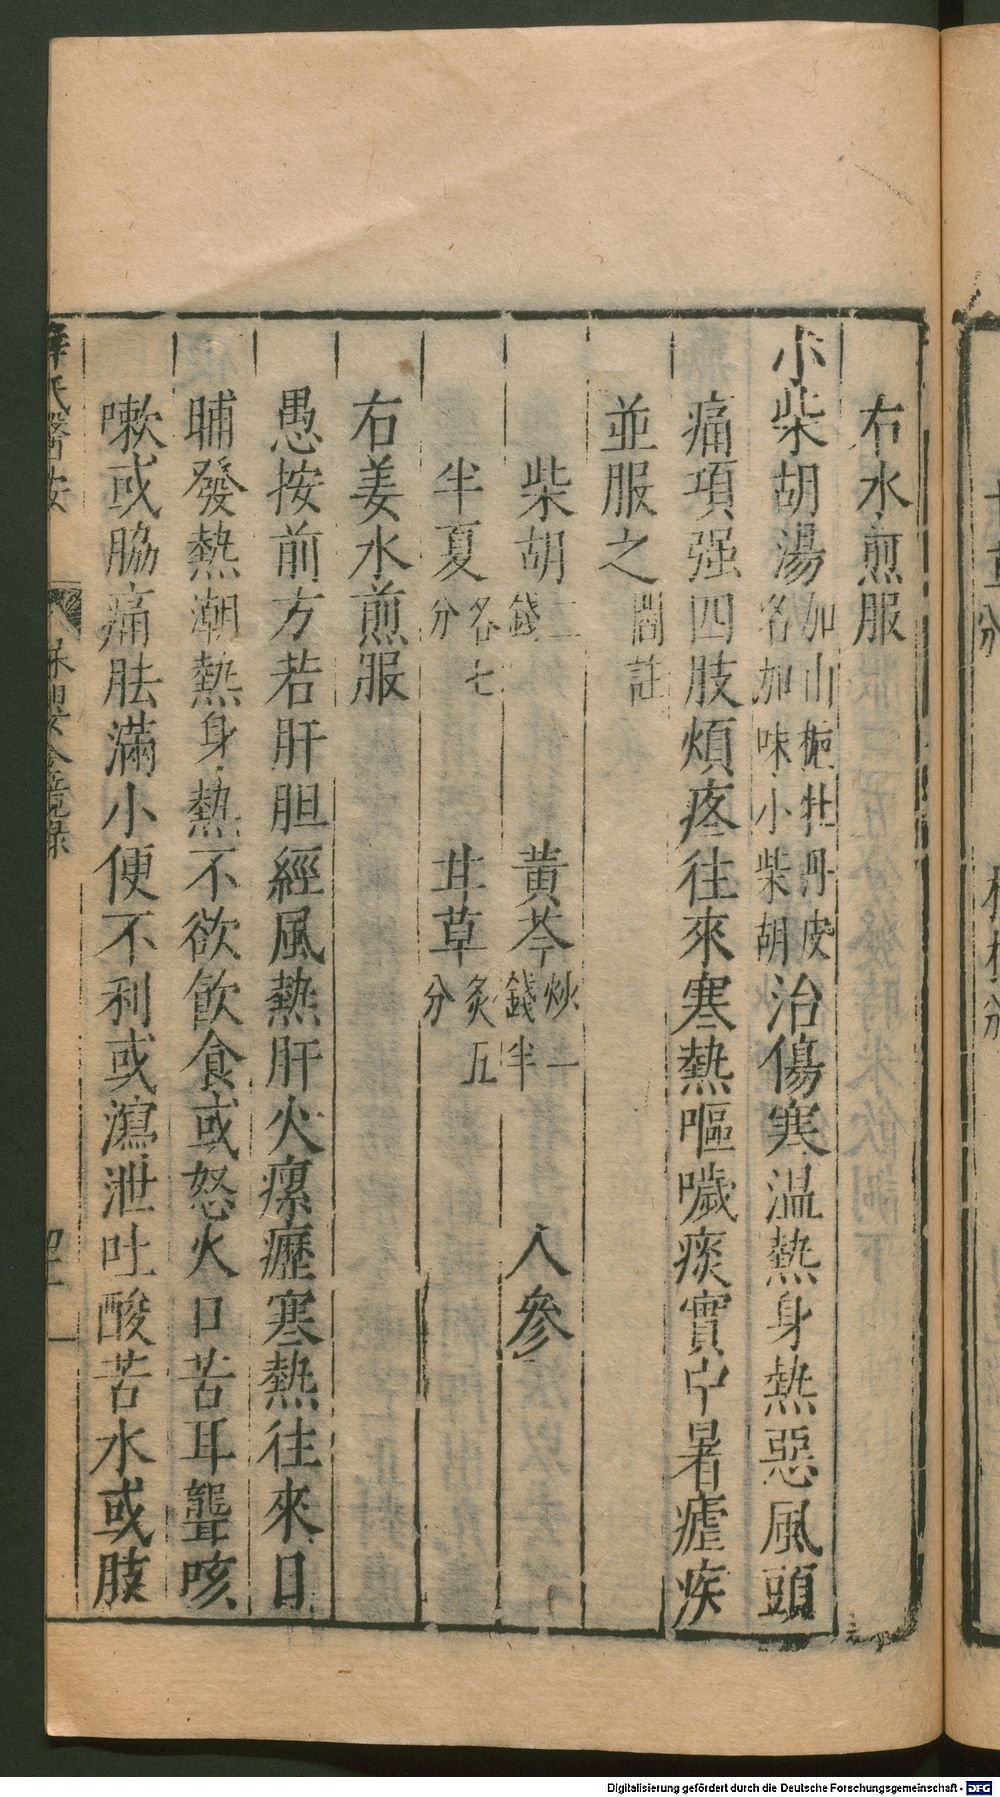 右水煎服
小柴胡湯加山梔牡丹皮名加味小柴胡治傷寒溫熱身熱惡風頭
痛項强四肢煩疼往來寒熱嘔噦痰實中暑瘧疾
並服之閻註
柴胡二錢 黃芩炒一錢半 人參
半夏各七分 甘草炙五分
右姜水煎服
愚按前方若肝胆經風熱肝火瘰癧寒熱往來日
晡發熱潮熱身熱不欲飲食或怒火口苦耳聾咳
嗽或脇痛胠滿小便不利或瀉泄吐酸苦水或肢
薛氏醫按 保嬰金鏡錄
Digitalisierung gefördert durch die Deutsche Forschungsgemeinschaft - DFG